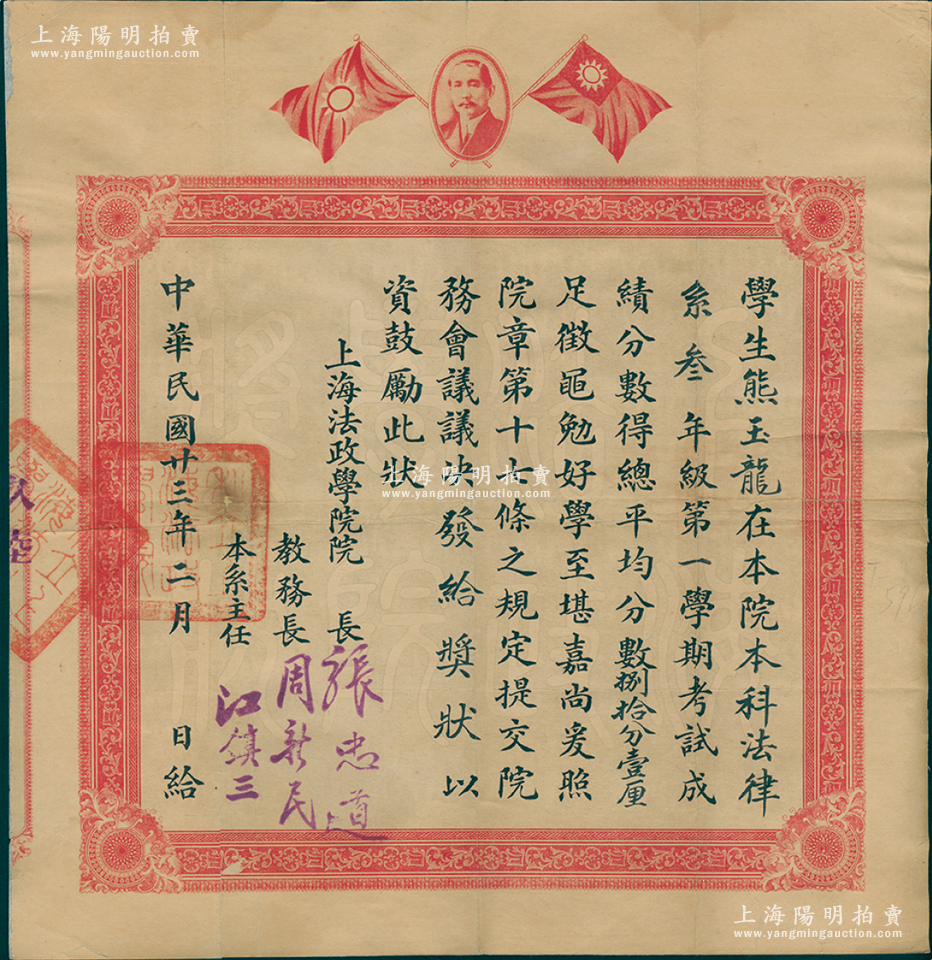 上海陽明拍賣
www.yangmingauction.com
學生熊玉龍在本院本科法律
系叁年級第一學期考試成
績分數得總平均分數捌拾分壹厘
足徵黽勉好學至堪嘉尚爰照
院章第十七條之規定提交院
務會議議決發給獎狀以
資鼓勵此狀
上海法政學院院長張忠道
教務長周新民
本系主任江鎮三
中華民國廿三年二月日給
上海陽明拍賣
www.yangmingauction.com
上海陽明拍賣
www.yangmingauction.com